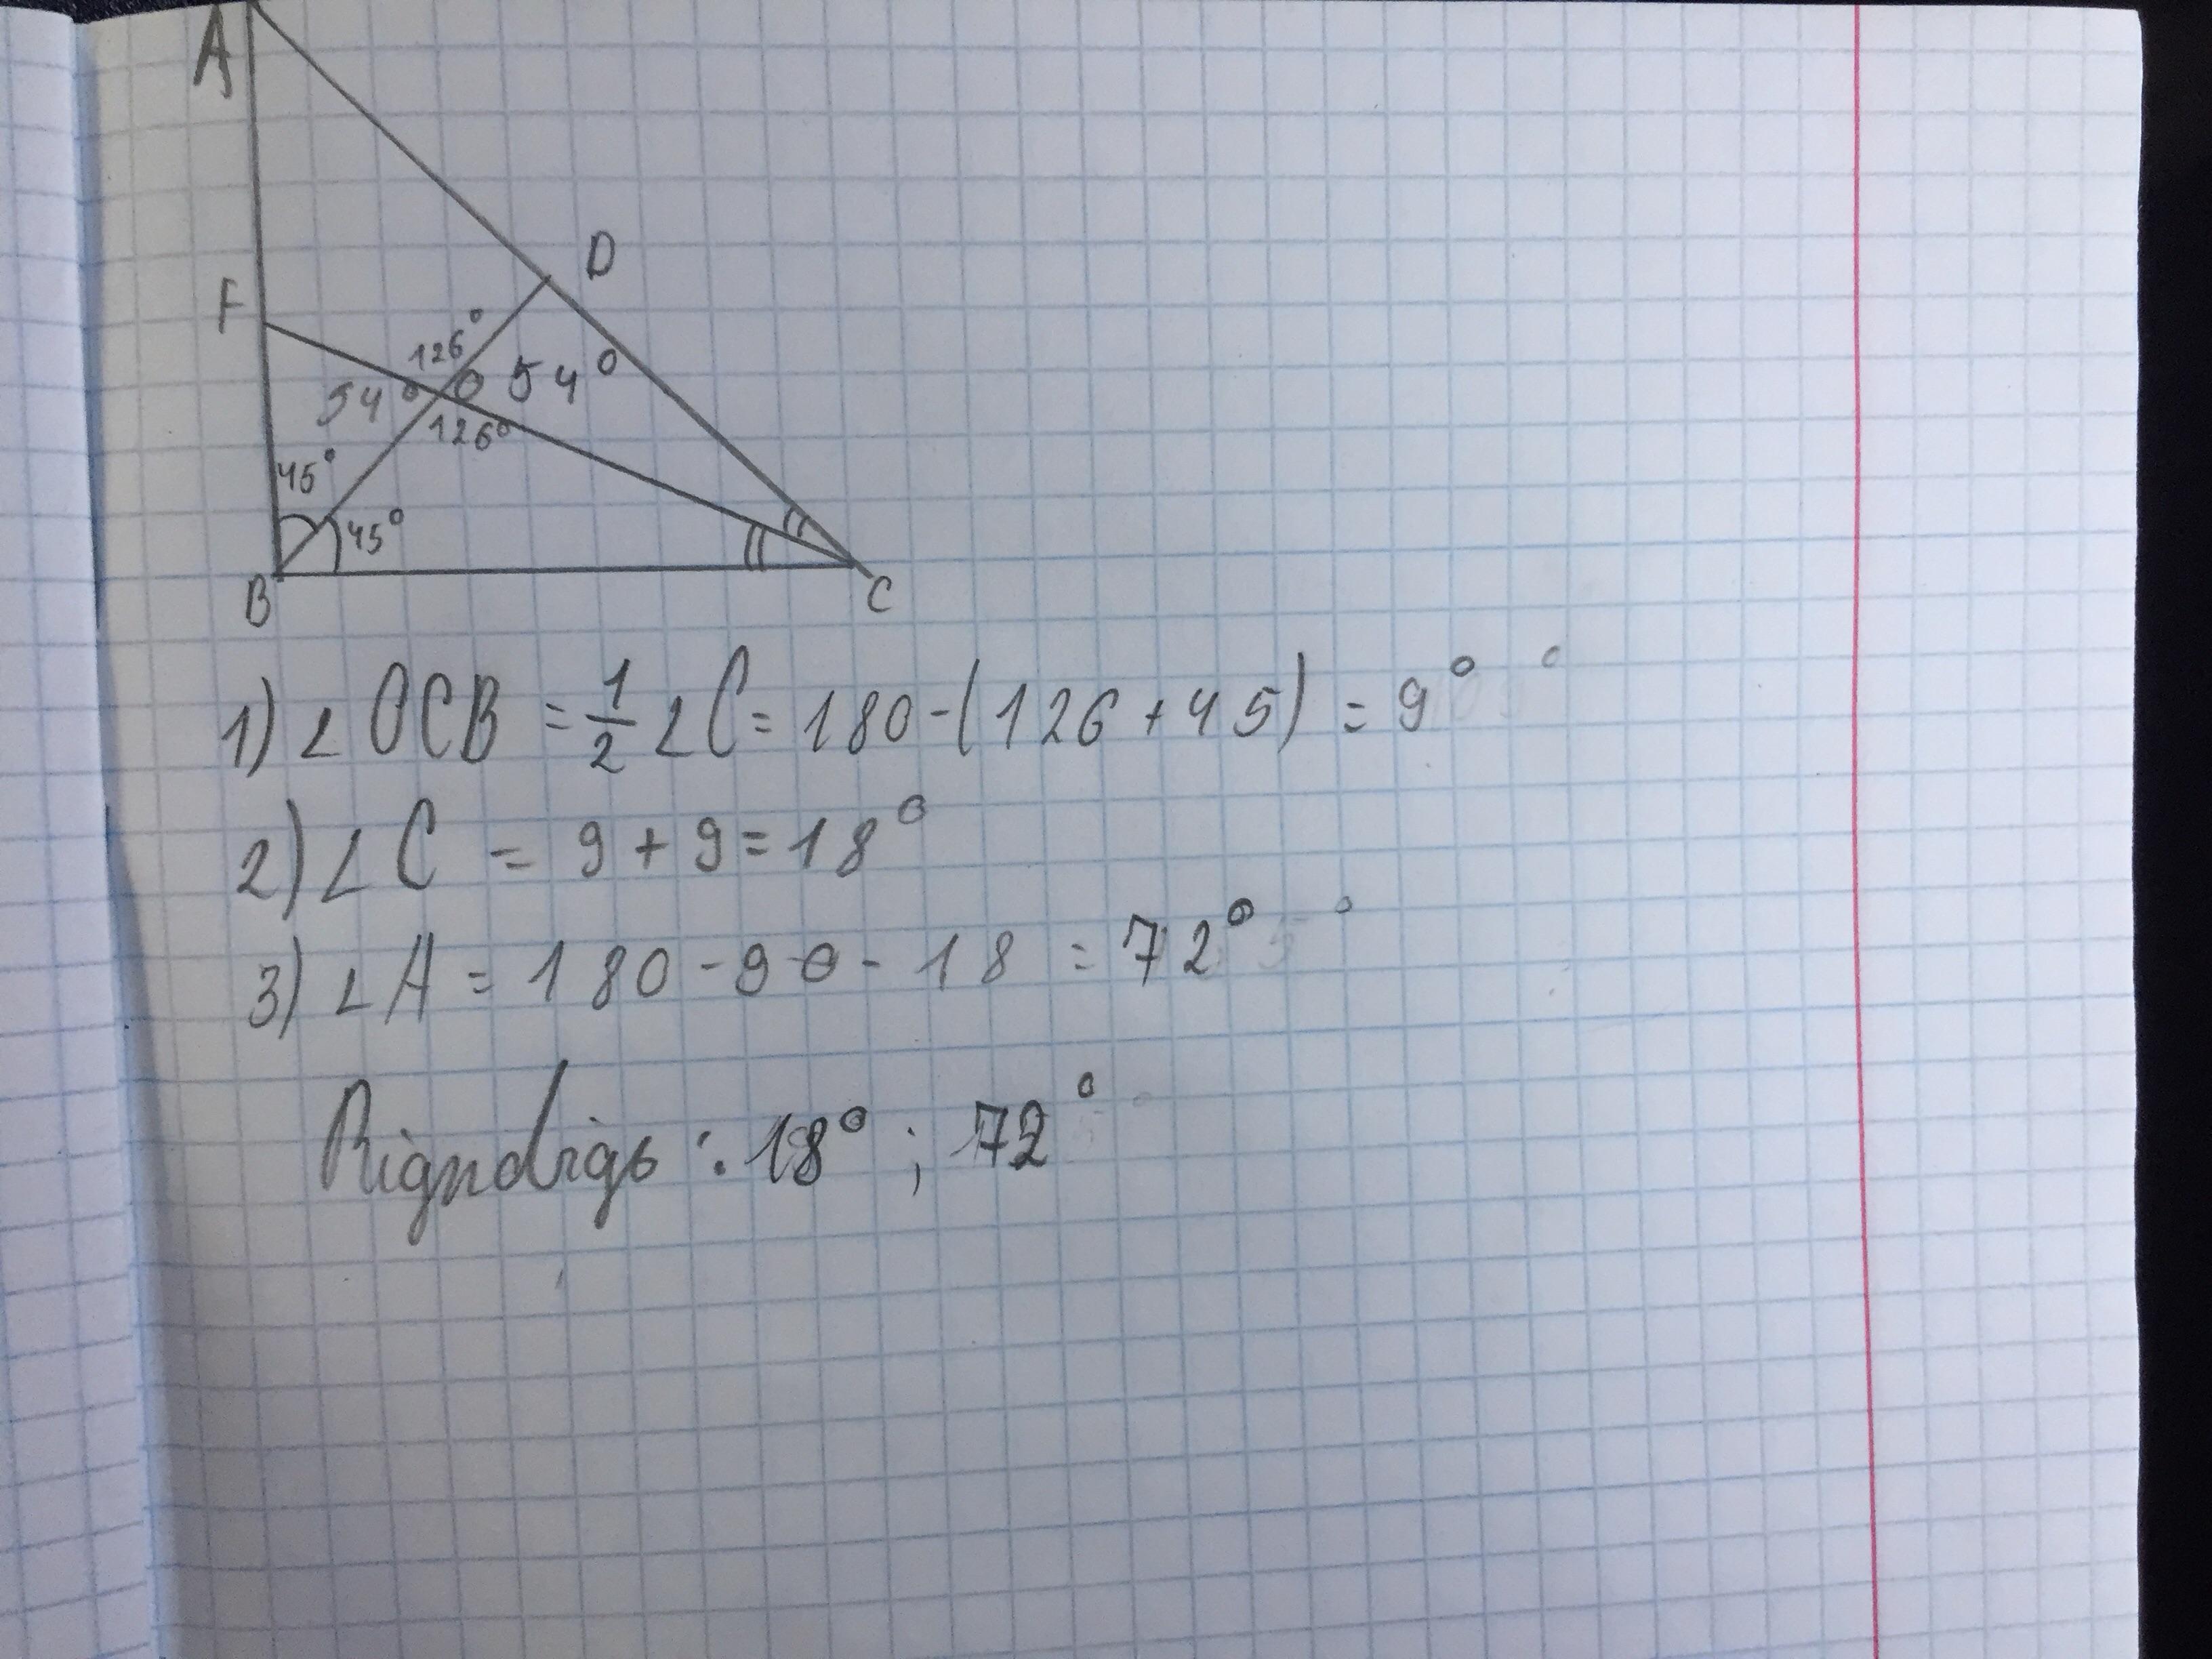 A
D
F
126°
54° O 54°
126°
45°
45°
B
C
1) ∠OCB = 1/2 ∠C = 180 - (126 + 45) = 9°
2) ∠C = 9 + 9 = 18°
3) ∠A = 180 - 90 - 18 = 72°
18° ; 72°